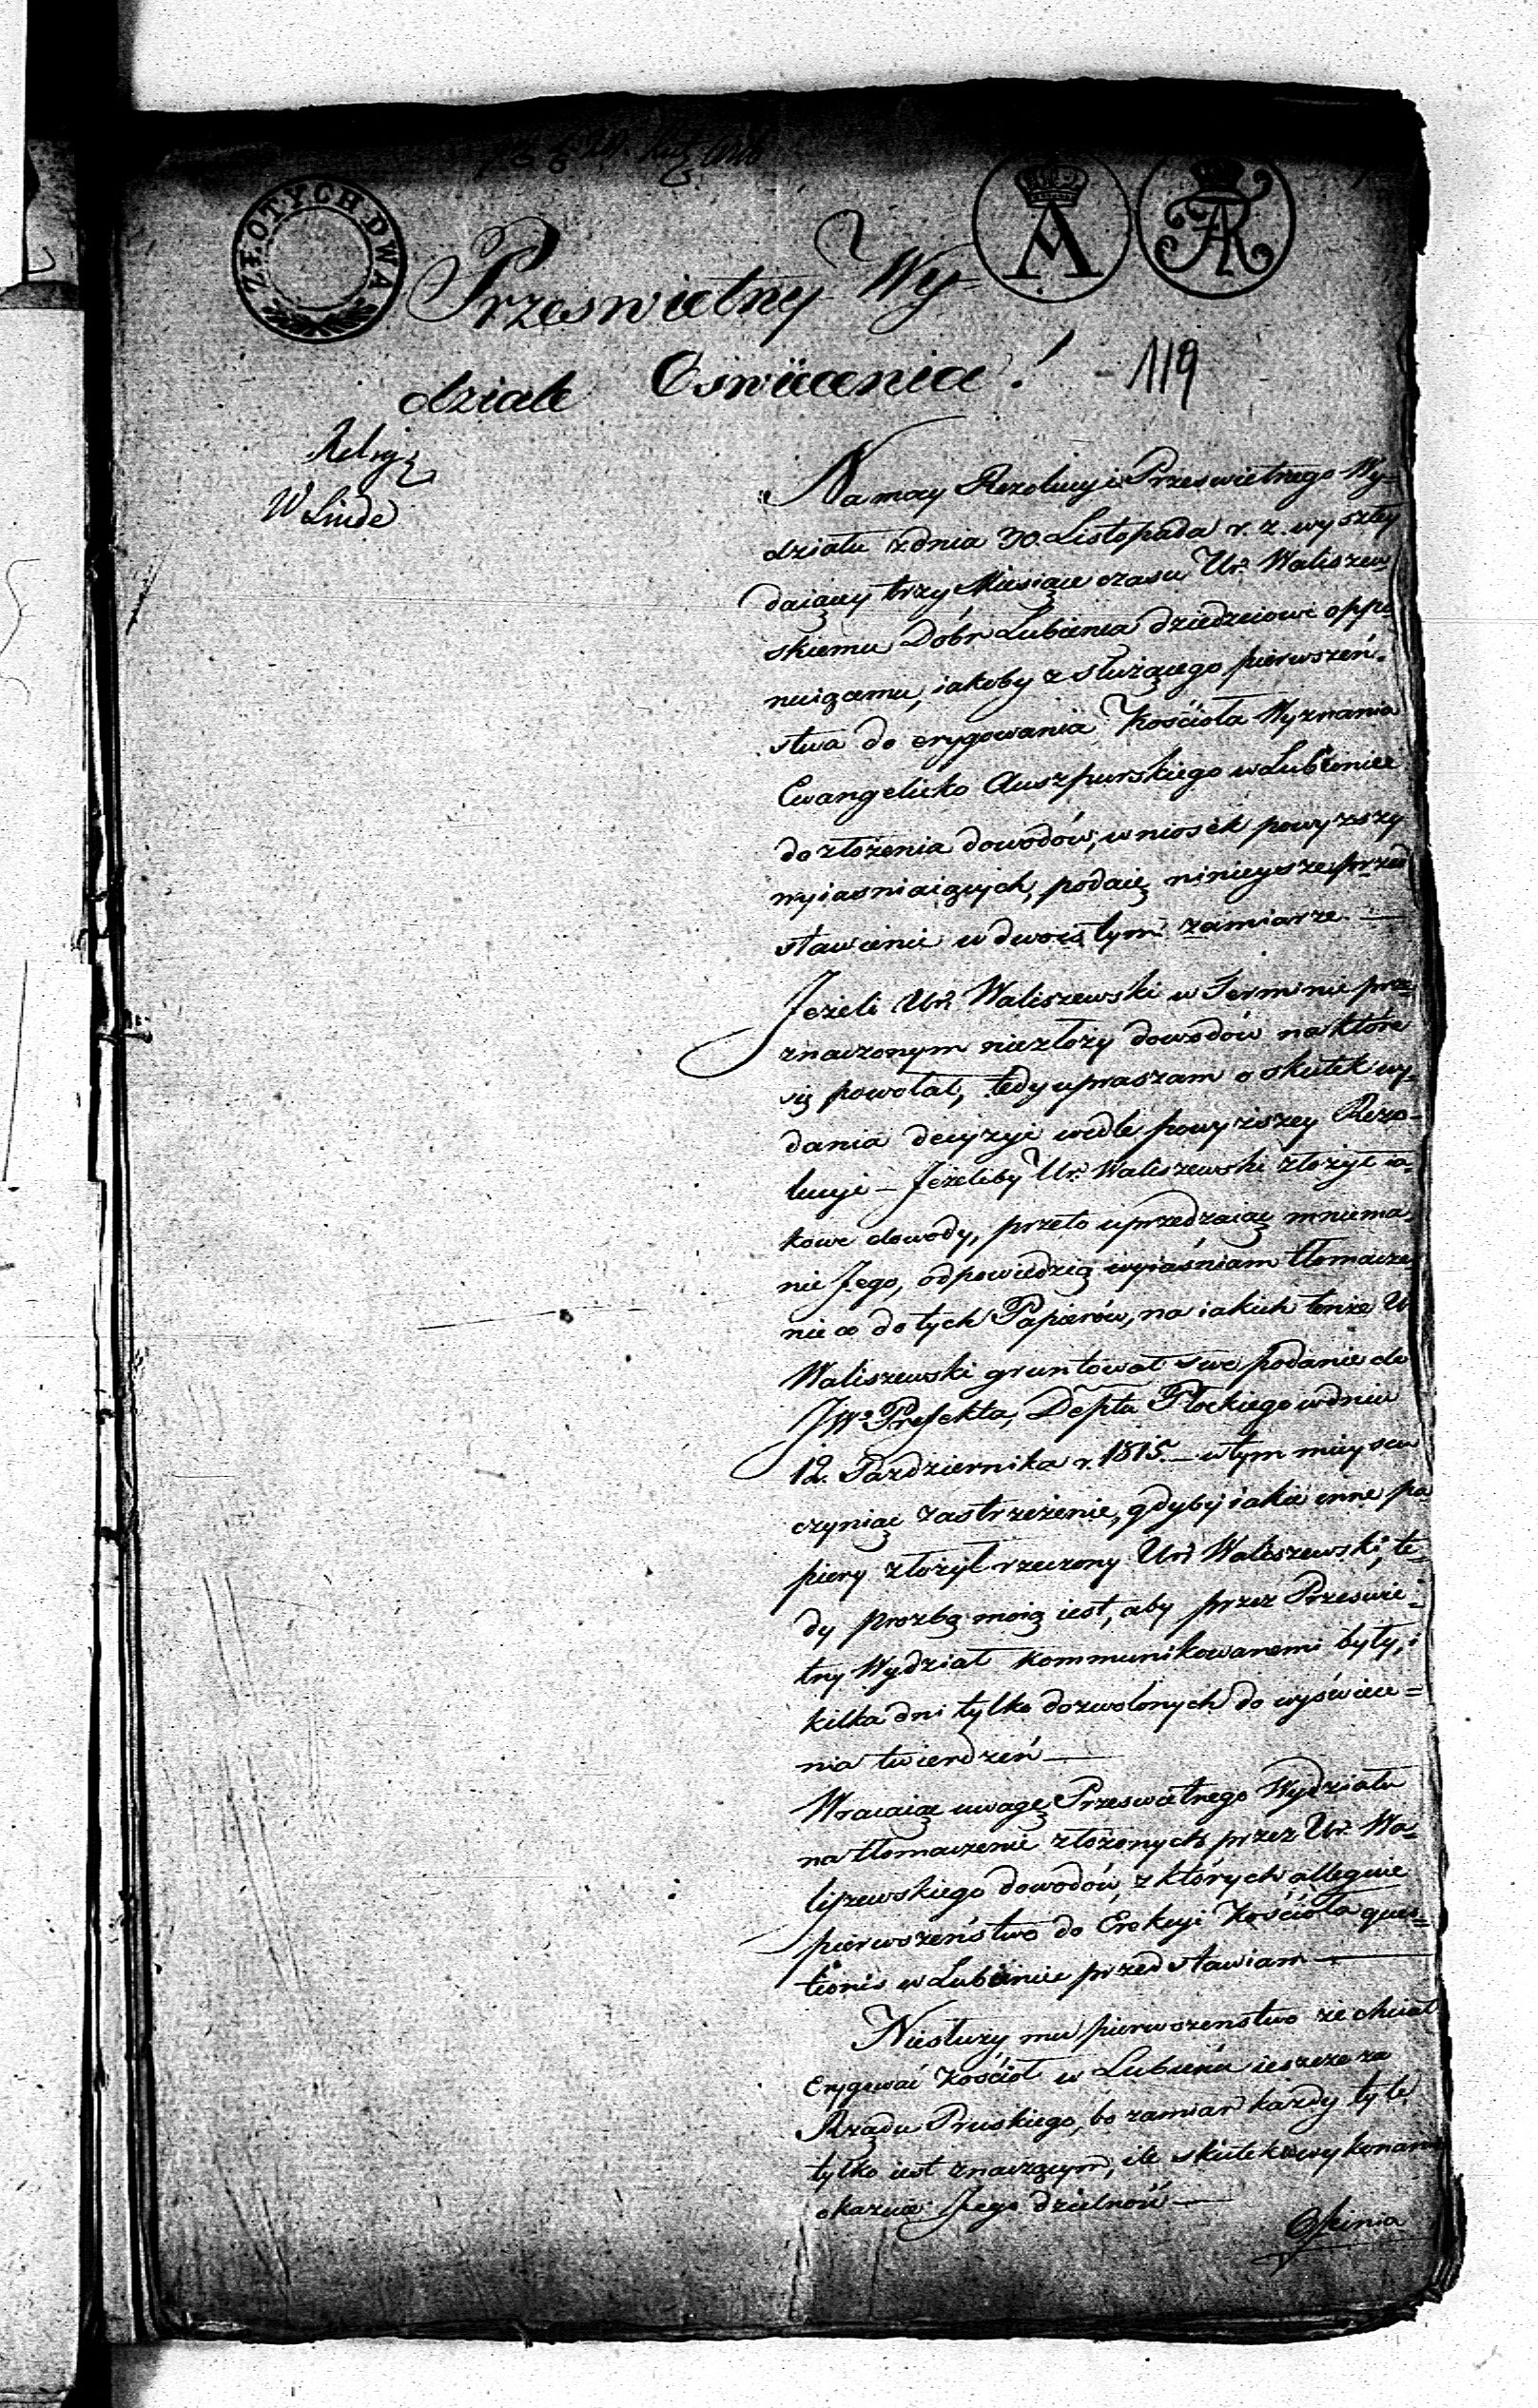 ZŁOTYCH DWA
A
Przeswietny Wy-
dziale Oswiecenia!
119
W Linde
Na mocy Rezolucyi Przeswietnego Wy-
działu z dnia 30 Listopada r. z. wyszłey
daiącey trzy Miesiące czasu Ur. Waliszew
skiemu Dóbr Lubienia dziedzicowi oppo
nuiącemu, iakoby z służącego pierwszeń-
stwa do erygowania Kościoła Wyznania
Ewangelicko Auszpurskiego w Lubieniec
do złożenia dowodów, wniosek powyższy
wyiasniaiących, podaię ninieysze przed
stawienie w dwoistym zamiarze. —
Jeżeli Ur. Waliszewski w Terminie prze-
znaczonym niezłoży dowodów na które
się powołał, tedy upraszam o skutek wy-
dania decyzyi wedle powyższey Rezo-
lucyi — Jeżeliby Ur. Waliszewski złożył ia-
kowe dowody, przeto uprzedzaiąc mniema-
nie Jego, odpowiedzią wyiaśniam tłomacze
nie co do tych Papierów, na iakich tenże U
Waliszewski gruntował swe podanie do
JW. Prefekta, Depta Płockiego w dniu
12. Października r. 1815. — w tym mieyscu
czyniąc zastrzeżenie, gdyby iakie inne pa
piery złożył rzeczony Ur. Waliszewski, te-
dy prozbą moią iest, aby przez Przeswie-
tny Wydział kommunikowanemi były, i
kilka dni tylko dozwolonych do wyświece=
nia twierdzeń —
Wracaiąc uwagę Przeswietnego Wydziału
na tłomaczenie złożonych przez Ur. Wa-
liszewskiego dowodów, z których alleguie
pierwszeństwo do Erekcyi Kościoła ques-
tionis w Lubieniu przedstawiam —
Niesłuży mu pierwszenstwo że chciał
Erygować Kościół w Lubieniu ieszcze za
Rządu Pruskiego, bo zamiar każdy tyle
tylko iest znaczącym, ile skutek wykonania
okazuie Jego dzielność —